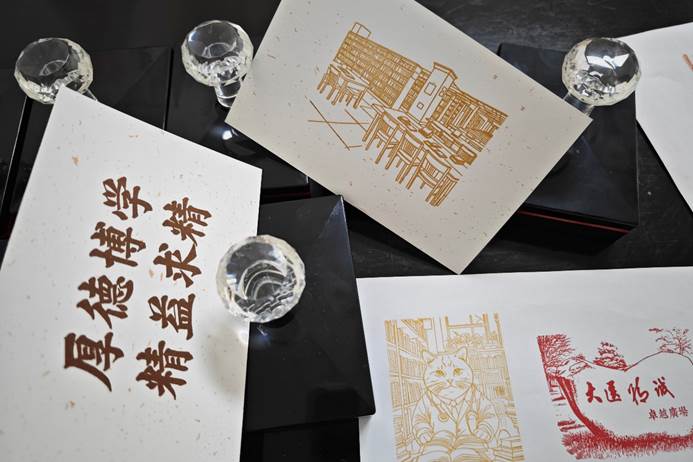 厚德博学
精益求精
大医精诚
卓越廣場